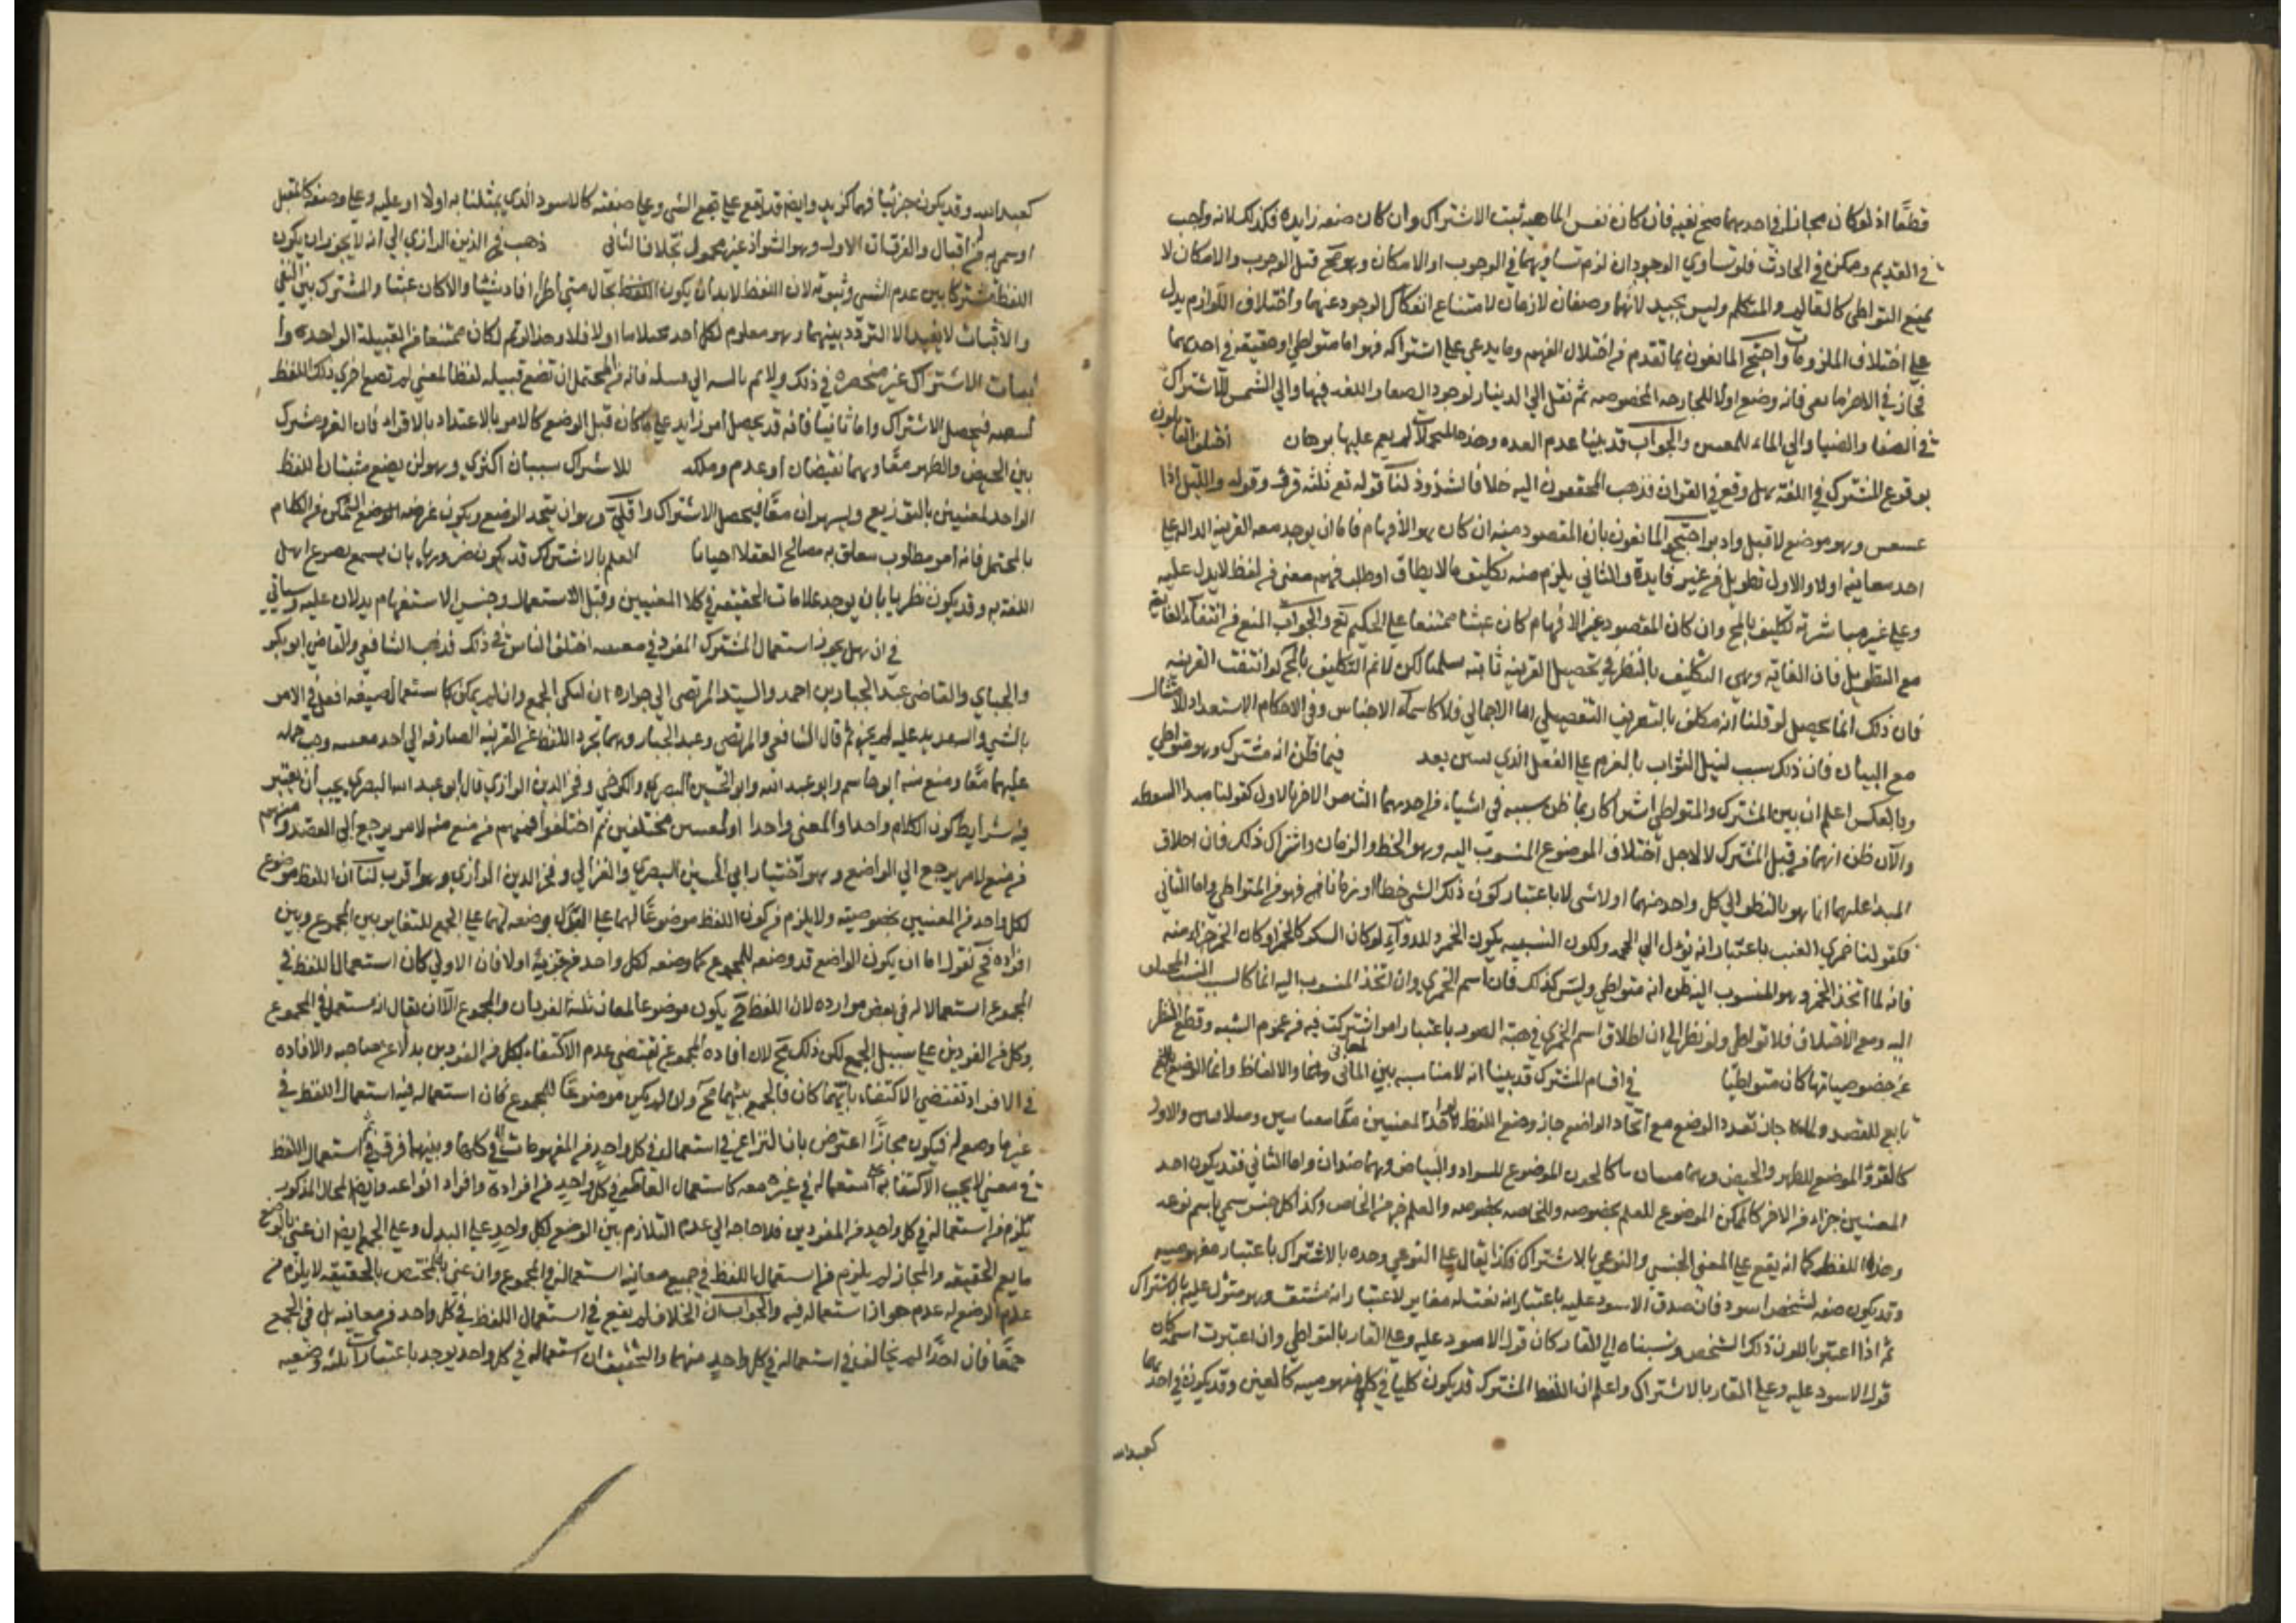 قطعًا اذ لو كان مجازا في احديهما صح نفيه فان كان نفس الماهيه ثبت الاشتراك وان كان صفه زايده فكذلك لانه واجب
في القديم وممكن في الحادث فلو تساوي الوجودان لزم تساويهما في الوجوب او الامكان وهو مح قيل الوجوب والامكان لا
يمنع التواطى كالعالم والمتكلم وليس بجيد لانهما وصفان لازمان لامتناع انفكاك الوجود عنهما واختلاف اللوازم يدل
علي اختلاف الملزومات واحتج المانعون بما تقدم من اختلال الفهم وما يدعي علي اشتراكه فهو اما متواطي او حقيقه في احديهما
مجاز في الاخر فانه وضع اولا للجارحه المخصوصه ثم نقل الي الدينار لوجود الصفا فيها والي الشمس للاشتراك
في الصفا والضيا والي الماء والجواب قد بينا عدم وهذه المحملات لم يقم عليها برهان اختلف القايلون
بوقوع المشترك في اللغة هل وقع في القران فذهب المحققون اليه خلافا لشذوذ لنا قوله تع ثلثه قروء وقوله والليل اذا
عسعس وهو موضع لاقبل وادبر احتج المانعون بان المقصود منه ان كان هو الافهام فاما ان يوجد معه القرينه الداله علي
احد معانيه اولا والاول تطويل من غير فايدة والثاني يلزم منه تكليف ما لا يطاق او طلب فهم معنى من لفظ لا يدل عليه
وعلي غير مباشرته تكليف بالمح وان كان المقصود غير الافهام كان عبثا ممتنعا علي الحكيم تع والجواب المنع من انتفاء الفايدة
مع التطويل فان الغايه وهي التكليف بالنظر في تحصيل القرينه ثابته سلمنا لكن لا نم التكليف بالمح لو انتفت القرينه
فان ذلك انما يحصل لو قلنا انه مكلف بالتعريف التفصيلي اما الاجمالي فلا كاسماء الاجناس وفي الاحكام الاستعداد للامتثال
مع البيان فان ذلك سبب لنيل الثواب بالعزم علي الفعل الذي بعد فيما ظن انه مشترك وهو متواطي
وبالعكس اعلم ان بين المشترك والمتواطي اشتراكا ربما ظن بسببه في اشياء من احديهما انها من الاخر فالاول كقولنا مبدا للنقطه
والآن ظن انهما من قبيل المشترك لا لاجل اختلاف الموضوع المنسوب اليه وهو الخط والزمان واشتراك ذلك فان اطلاق
المبدا عليهما انما هو بالنظر الي كل واحد منهما اول لشي لا باعتبار كون ذلك الشي خطا او زمانا فهو من المتواطي واما الثاني
فكقولنا خمري للعنب باعتبار انه يؤل الي الخمر ولكون الشبيه بكون الخمر وللدواء لو كان السكر كالخمر او كان الخمر جزاء منه
فانه لما اتخذ الخمر وهو المنسوب اليه ظن انه متواطي وليس كذلك فان اسم الخمري وان اتخذ المنسوب اليه انما
اليه ومع الاختلاف فلا تواطى ولو نظر الي ان اطلاق اسم الخمري في هذه الصور باعتبار امر اشتركت فيه من عموم الشبه وقطع النظر
عن خصوصياتها كان متواطيًا في اقسام المشترك قد بينا انه لا مناسبه بين المعاني والالفاظ وانما الوضع
تابع للقصد ولما جاز تعدد الوضع مع اتحاد الواضع جاز وضع اللفظ الواحد لمعنيين والاول
كالقرؤ الموضوع للطهر والحيض وهما كالجون الموضوع للسواد والبياض وهما ضدان واما الثاني فقد يكون احد
المعنيين جزاء من الاخر كالممكن الموضوع للعام بخصوصه وللخاص بخصوصه والعام جزء من الخاص وكذا كل جنس سمي باسم نوعه
وهذا اللفظ كما انه يقع علي المعني الجنسي والنوعي بالاشتراك فكذا يقال علي النوعي وحده بالاشتراك باعتبار مفهوميه
وقد يكون صفه لشخص اسود فان صدق الاسود عليه باعتبار انه لقب له مغاير لاعتبار انه مشتق وهو مقول عليه بالاشتراك
ثم اذا اعتبر باللون ذلك الشخص ونسبناه الي القار كان قول الاسود عليه وعلي القار بالتواطي وان اعتبرت اسمه كان
قول الاسود عليه وعلي القار بالاشتراك واعلم ان اللفظ المشترك قد يكون كليا في كلي مفهوميه كالعين وقد يكون في احديهما
كعبدالله
كعبدالله وقد يكون جزئيا فيهما كزيد وايضا قد يقع علي الشي وعلي صفته كالاسود الذي مثلنا به اولا او عليه وعلي وصفه كالمقبل
اوسمي به من اقبال والفرقات الاول وهو الشواذ غير محمول بخلاف الثاني ذهب فخر الدين الرازي الي انه لا يجوز ان يكون
اللفظ مشتركا بين عدم الشي وثبوته لان اللفظ لابد ان يكون بحال متي اطلق افاد شيئا والا كان عبثا والمشترك بين النفي
والاثبات لا يفيد الا التردد بينهما وهو معلوم لكل احد فلا وهذا لو تم لكان ممتنعا من القبيلة الواحده وا
سباب الاشتراك غير منحصره في ذلك ولا يتم بالنسبه الي فانه من المحتمل ان تضع قبيله لفظا لمعني لم تضع اخري ذلك اللفظ
لنقيضه فيحصل الاشتراك واما ثانيا فانه قد يحصل امر زايد علي ما كان قبل الوضع كالامر بالاعتداد بالاقراء فان القرء مشترك
بين الحيض والطهر معًا وهما نقيضان او عدم وملكه للاشتراك سببان اكثري وهو ان يضع شيئان اللفظ
الواحد لمعنيين بالتوزيع ويشهران معًا فيحصل الاشتراك واقلي وهو ان يتحد الوضع ويكون غرضه التمكن من الكلام
بالمحتمل فانه امر مطلوب يتعلق به مصالح العقلا احيانا العلم بالاشتراك قد يكون ضروريا بان يسمع بصريح اهل
اللغة به وقد يكون نظريا بان يوجد علامات الحقيقه في كلا المعنيين وقيل الاستعمال وحسن الاستفهام يدلان عليه وسياتي
في انه هل يجوز استعمال المشترك المفرد في معنييه اختلف الناس في ذلك فذهب الشافعي والقاضي ابو بكر
والجباي والقاضي عبد الجبار بن احمد والسيد المرتضي الي جوازه ان امكن الجمع وان لم يمكن كاستعمال صيغه افعل في الامر
بالشي والتهديد عليه لم يجز ثم قال الشافعي والمرتضي وعبد الجبار ومهما تجرد اللفظ عن القرينه الصارفه الي احد معنييه وجب حمله
عليهما معًا ومنع منه ابو هاشم وابو عبد الله وابو الحسين البصري والكرخي وفخر الدين الرازي قال ابو عبد الله البصري يجب ان يعتبر
فيه شرايط كون الكلام واحدا والمعني واحدا او لمعنيين مختلفين ثم اختلفوا فمنهم من منع منه لامر يرجع الي القصد ومنهم
من منع لامر يرجع الي الواضع وهو اختيار ابي الحسين البصري والغزالي وفخر الدين الرازي وهو اقرب لنا ان اللفظ موضوع
لكل واحد من المعنيين بخصوصيته ولا يلزم من كون اللفظ موضوعًا لهما علي البدل وضعه لهما علي الجمع للتغاير بين المجموع وبين
افراده فح نقول اما ان يكون الواضع قد وضعه للمجموع كما وضعه لكل واحد من جزئيه اولا فان الاول كان استعمال اللفظ في
المجموع استعمالا له في بعض موارده لان اللفظ ح يكون موضوعا لمعان ثلثة الفردان والمجموع الا ان يقال انه مستعمل في المجموع
وكل من الفردين علي سبيل الجمع لكن ذلك مح لان افاده المجموع تقتضي عدم الاكتفاء بكل من الفردين بدلا عن صاحبه والافاده
في الافراد تقتضي الاكتفاء بايهما كان فالجمع بينهما مح وان لم يكن موضوعًا للمجموع كان استعماله فيه استعمال اللفظ في
غير ما وضع له فيكون مجازًا اعترض بان النزاع في استعماله في كل واحد من المفهومات لا في كلها وبينهما فرق ثم استعمال اللفظ
في معني لا يوجب الاكتفا به عن استعماله في غيره معه كاستعمال العام في كل واحد من افراده وافراد انواعه وايضا المحال المذكور
يلزم من استعماله في كل واحد من المفردين فلا حاجه الي عدم التلازم بين الوضع لكل واحد علي البدل وعلي الجمع وايضا ان عني بالوضع
ما يعم الحقيقه والمجاز لم يلزم من استعمال اللفظ في جميع معانيه استعماله في المجموع وان عني به المختص بالحقيقه لا يلزم من
عدم الوضع له عدم جواز استعماله فيه والجواب ان الخلاف لم يقع في استعمال اللفظ في كل واحد من معانيه بل في الجمع
جمعًا فان احدًا لم يخالف في استعماله في كل واحد منهما والتحقيق ان استعماله في كل واحد يوجد باعتبارات ثلثه وضعيه